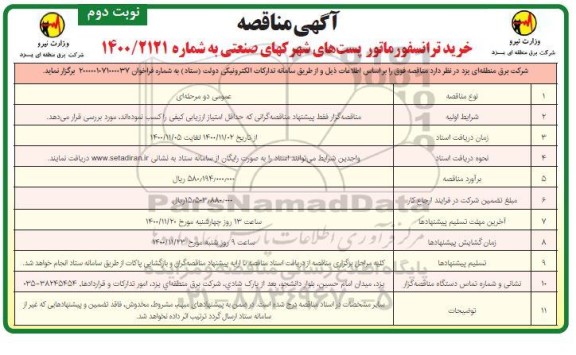 نوبت دوم
آگهی مناقصه
وزارت نیرو
شرکت برق منطقه ای یزد
وزارت نیرو
شرکت برق منطقه ای یزد
خرید ترانسفورماتور پست‌های شهرکهای صنعتی به شماره ۱۴۰۰/۲۱۲۱
شرکت برق منطقه‌ای یزد در نظر دارد مناقصه فوق را براساس اطلاعات ذیل و از طریق سامانه تدارکات الکترونیکی دولت (ستاد) به شماره فراخوان برگزار نماید.
۱ نوع مناقصه عمومی دو مرحله‌ای
۲ شرایط اولیه مناقصه‌گزار فقط پیشنهاد مناقصه‌گرانی که حداقل امتیاز ارزیابی کیفی را کسب نموده‌اند، مورد بررسی قرار می‌دهد.
۳ زمان دریافت اسناد از تاریخ ۱۴۰۰/۱۱/۰۲ لغایت ۱۴۰۰/۱۱/۰۵
۴ نحوه دریافت اسناد واجدین شرایط می‌توانند اسناد را به صورت رایگان از سامانه ستاد به نشانی www.setadiran.ir دریافت نمایند.
۵ برآورد مناقصه ۵۸۰٫۱۹۴٫۰۰۰٫۰۰۰ ریال
۶ مبلغ تضمین شرکت در فرایند ارجاع کار ریال
۷ آخرین مهلت تسلیم پیشنهادها ساعت ۱۳ روز چهارشنبه مورخ ۱۴۰۰/۱۱/۲۰
۸ زمان گشایش پیشنهادها ساعت ۹ روز شنبه مورخ ۱۴۰۰/۱۱/۲۳
۹ تسلیم پیشنهادها کلیه مراحل برگزاری مناقصه از دریافت اسناد مناقصه تا ارایه پیشنهاد مناقصه‌گران و بازگشایی پاکات از طریق سامانه ستاد انجام خواهد شد.
۱۰ نشانی و شماره تماس دستگاه مناقصه‌گزار یزد، میدان امام حسین، بلوار دانشجو، بعد از پارک شادی، شرکت برق منطقه‌ای یزد، امور تدارکات و قراردادها، ۳۸۲۴۵۴۵۴-۰۳۵
۱۱ توضیحات سایر مشخصات در اسناد مناقصه درج شده است. در ضمن به پیشنهادهای مبهم، مشروط، مخدوش، فاقد تضمین و پیشنهادهایی که غیر از سامانه ستاد ارسال گردد ترتیب اثر داده نخواهد شد.
ParsNamadData